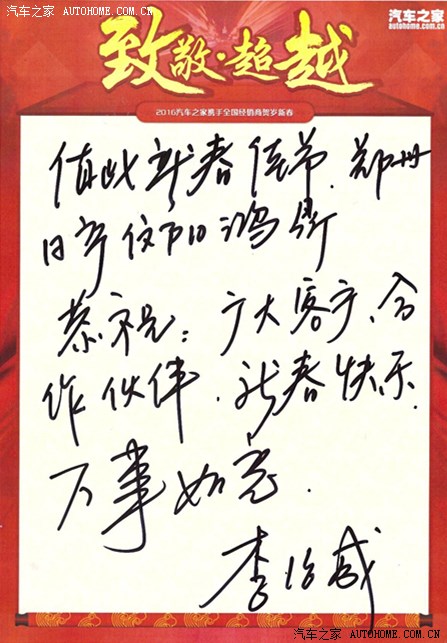 汽车之家 AUTOHOME.COM.CN
汽车之家
autohome.com.cn
致敬·超越
2016汽车之家携手全国经销商贺岁新春
值此新春佳节,郑州
日产 阳鸿
恭祝:广大客户、合
作伙伴,新春快乐.
万事如意.
李治威
汽车之家 AUTOHOME.COM.CN